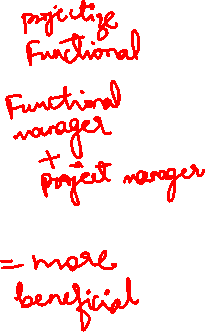 projectize
Functional
Functional
manager
+
project manager
= more
beneficial